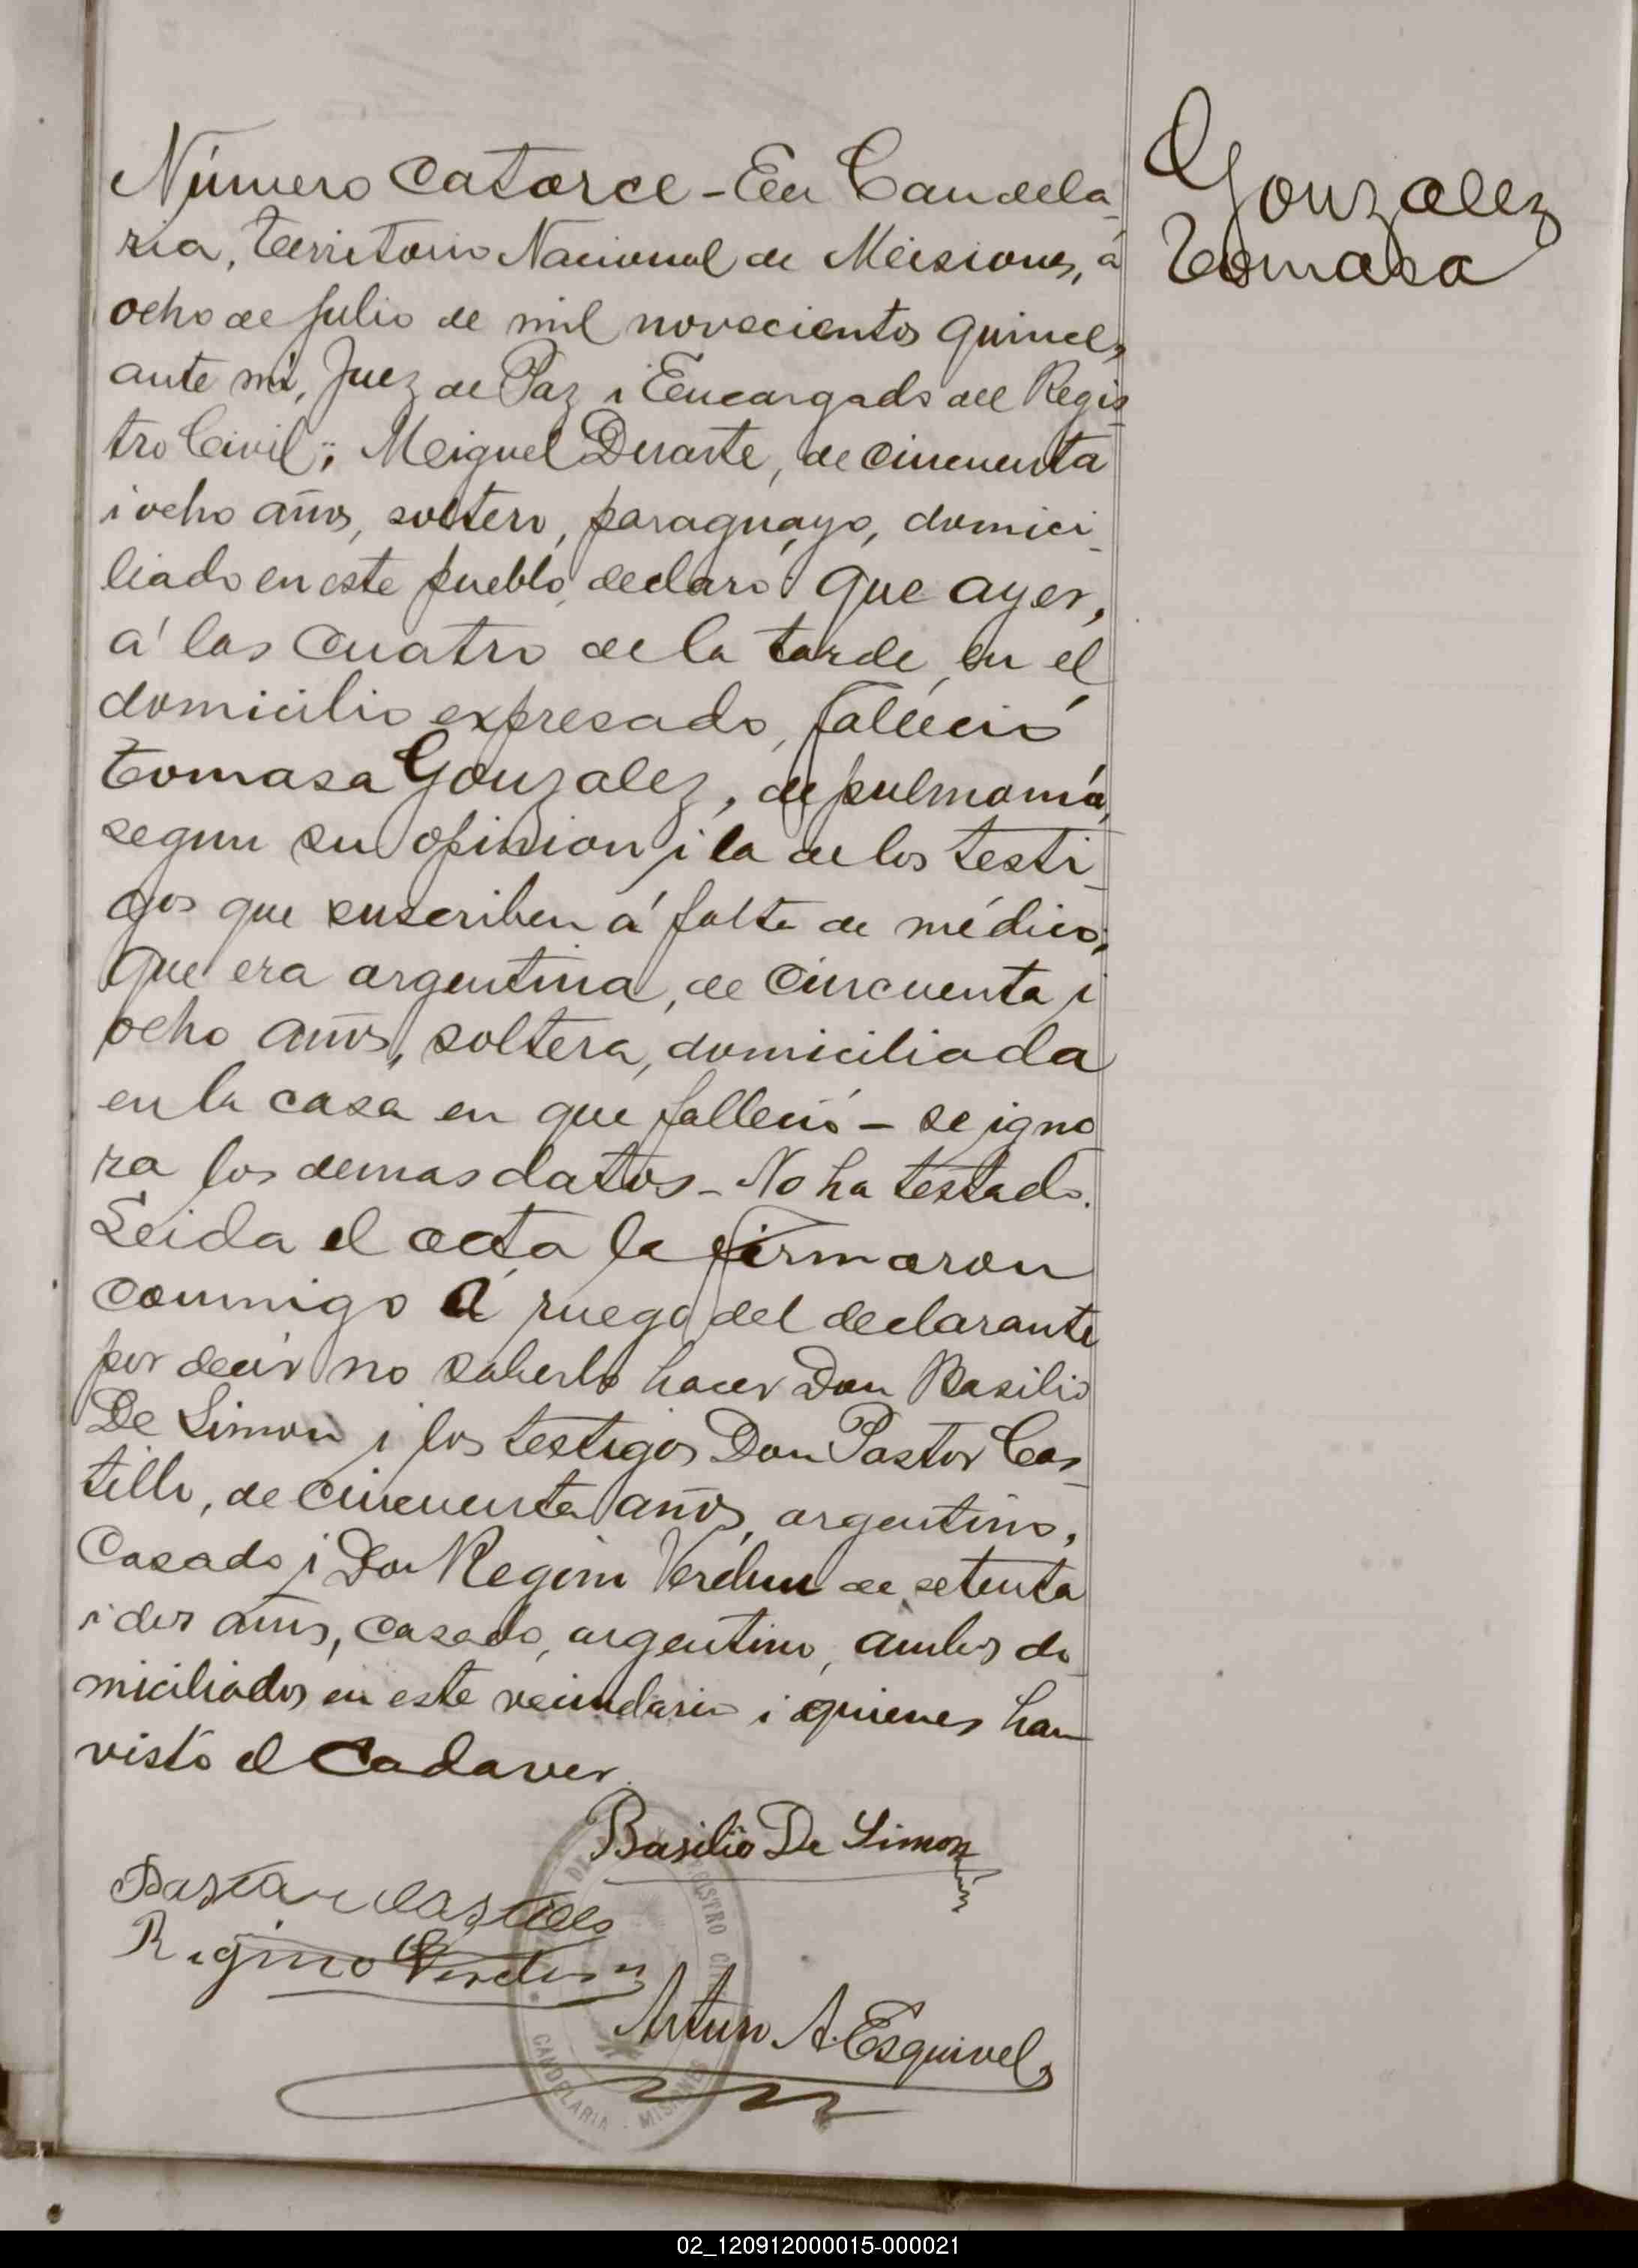 Gonzalez
Tomasa
Número catorce - En Candela-
ria, Territorio Nacional de Misiones, á
ocho de Julio de mil novecientos quince,
ante mi, Juez de Paz i Encargado del Regis-
tro Civil; Miguel Duarte, de cincuenta
i ocho años, soltero, paraguayo, domici-
liado en este pueblo, declaró: Que ayer,
á las cuatro de la tarde, en el
domicilio expresado, falleció
Tomasa Gonzalez, de pulmonía,
segun su opinion i la de los testi-
gos que suscriben á falta de médico;
Que era argentina, de cincuenta i
ocho años, soltera, domiciliada
en la casa en que falleció - se igno
ra los demas datos - No ha testado.
Leida el acta la firmaron
conmigo á ruego del declarante
por decir no saberlo hacer Don Basilio
De Simon i los testigos Don Pastor Cas-
tillo, de cincuenta años, argentino,
casado i Don Regino Verdun de setenta
i dos años, casado, argentino, ambos do
miciliados en este vecindario i quienes han
visto el cadaver.
Basilio De Simon
Pastar Castillo
Rigino Verdun
Arturo A. Esquivel
REGISTRO CIVIL
CANDELARIA - MISIONES
02_120912000015-000021